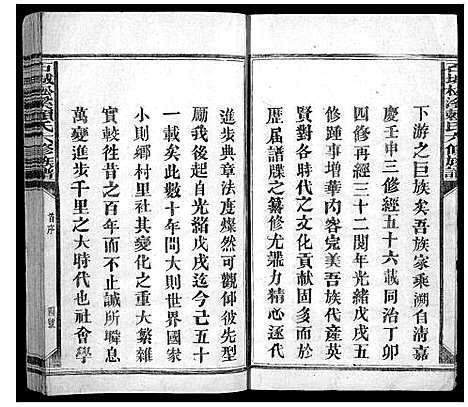 古城松溪賴氏六修族譜
下游之巨族矣吾族家乘溯自清嘉
慶壬申三修經五十六載同治丁卯
四修再經三十二閱年光緒戊戌五
修踵事增華內容完美吾族代產英
賢對各時代之文化貢獻固多而於
歷屆譜牒之纂修尤殫力精心蒸蒸
進步典章法度燦然可觀仰彼先型
勵我後起自光緒戊戌迄今己五十
一載矣此數十年間大則世界國家
小則鄉村里社其變化之重大繁雜
實較徃昔之百年而不止誠所瞬息
萬變進步千里之大時代也社會學
古城松溪賴氏六修族譜
首序
四號